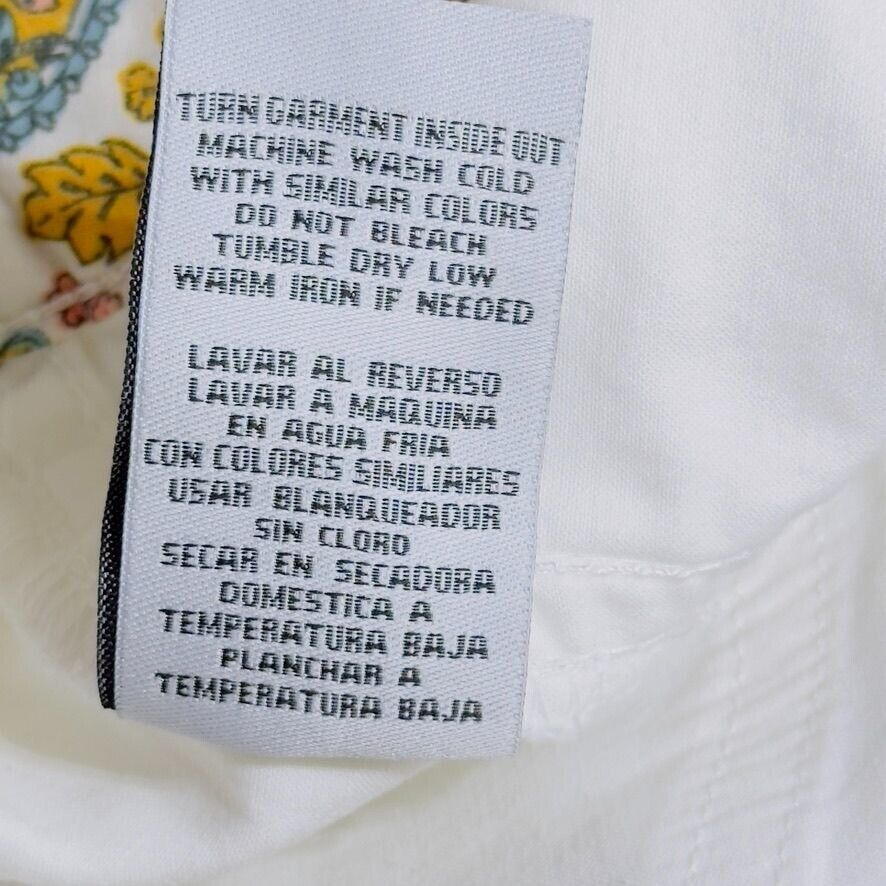 TURN GARMENT INSIDE OUT
MACHINE WASH COLD
WITH SIMILAR COLORS
DO NOT BLEACH
TUMBLE DRY LOW
WARM IRON IF NEEDED
LAVAR AL REVERSO
LAVAR A MAQUINA
EN AGUA FRIA
CON COLORES SIMILIARES
USAR BLANQUEADOR
SIN CLORO
SECAR EN SECADORA
DOMESTICA A
TEMPERATURA BAJA
PLANCHAR A
TEMPERATURA BAJA